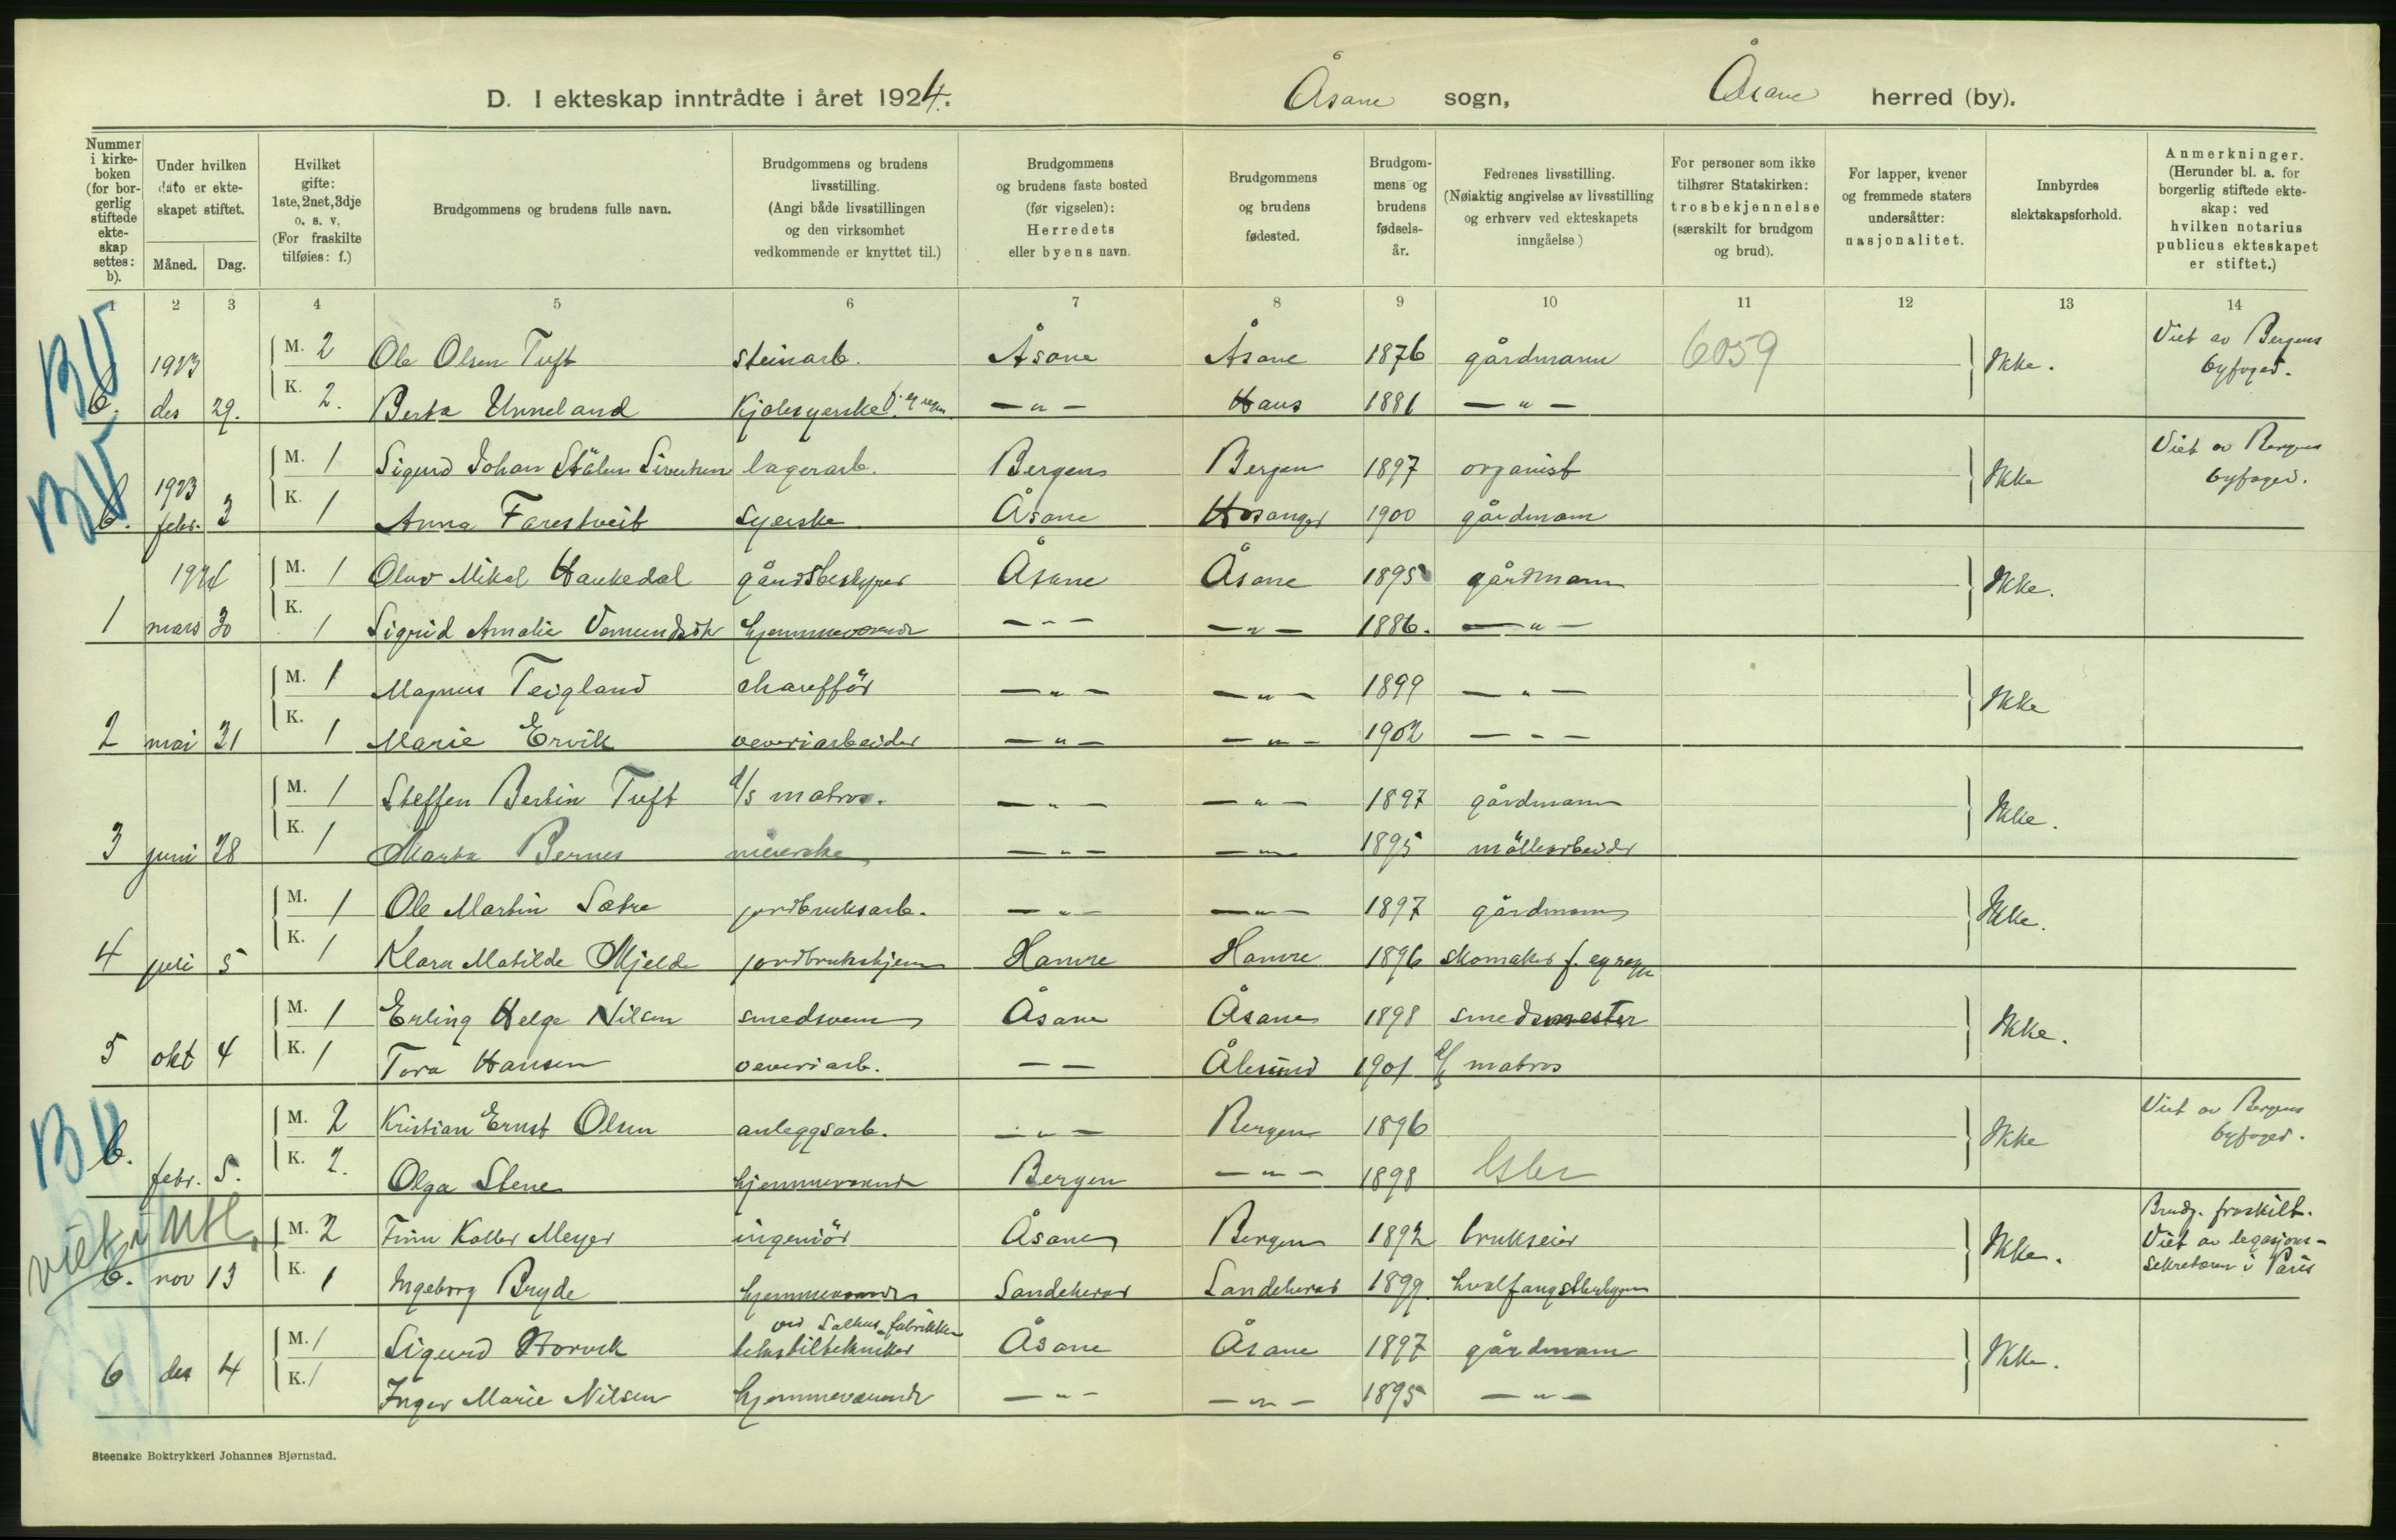 D. I ekteskap inntrådte i året 1924. Åsane sogn, Åsane herred (by).
Nummer i kirkeboken (for borgerlig stiftede ekteskap settes: b).
Under hvilken dato er ekteskapet stiftet.
Måned. Dag.
Hvilket gifte: 1ste, 2net, 3dje o. s. v. (For fraskilte tilføies: f.)
Brudgommens og brudens fulle navn.
Brudgommens og brudens livsstilling. (Angi både livsstillingen og den virksomhet vedkommende er knyttet til.)
Brudgommens og brudens faste bosted (før vigselen): Herredets eller byens navn.
Brudgommens og brudens fødested.
Brudgommens og brudens fødselsår.
Fedrenes livsstilling. (Nøiaktig angivelse av livsstilling og erhverv ved ekteskapets inngåelse)
For personer som ikke tilhører Statskirken: trosbekjennelse (særskilt for brudgom og brud).
For lapper, kvener og fremmede staters undersåtter: nasjonalitet.
Innbyrdes slektskapsforhold.
Anmerkninger. (Herunder bl. a. for borgerlig stiftede ekteskap: ved hvilken notarius publicus ekteskapet er stiftet.)
1 2 3 4 5 6 7 8 9 10 11 12 13 14
1923 M. 2 Ole Olsen Tuft steinarb. Åsane Åsane 1876 gårdmann 6059 Ikke. Viet av Bergens byfoged.
b. des 29. K. 2. Berta Unneland Kjolesyerske f. eg regn. — " — Haus 1881 — " —
1923 M. 1 Sigurd Johan Stålen Sivertsen lagerarb. Bergen Bergen 1897 organist Ikke Viet av Bergens byfoged.
b. febr. 3 K. 1 Anna Farestveit Syerske Åsane Hosanger 1900 gårdmann
1924 M. 1 Olav Mikal Haukedal gårdsbestyrer Åsane Åsane 1895 gårdmann Ikke.
1 mars 30 K. 1 Sigrid Amalie Vemundvik hjemmeværende — " — — " — 1886. — " —
M. 1 Magnus Teigland chauffør — " — — " — 1899 — " — Ikke
2 mai 31 K. 1 Marie Ervik veveriarbeider — " — — " — 1902 — " —
M. 1 Steffen Bertin Tuft d/s matros. — " — — " — 1897 gårdmann Ikke.
3 juni 28 K. 1 Marta Bernes meierske — " — — " — 1895 møllearbeider
M. 1 Ole Martin Sætre jordbruksarb. — " — — " — 1897 gårdmann Ikke.
4 juli 5 K. 1 Klara Matilde Mjelde jordbrukshjem Hamre Hamre 1896 skomaker f. eg regn
M. 1 Erling Helge Nilsen smedsvenn Åsane Åsane 1898 smedmester Ikke.
5 okt 4 K. 1 Tora Hansen veveriarb. — — Ålesund 1901 d/s matros
M. 2 Kristian Ernst Olsen anleggsarb. — " — Bergen 1896 Ikke Viet av Bergens byfoged.
b. febr. 5. K. 2. Olga Stene hjemmeværende Bergen — " — 1898
viet i Utl.
M. 2 Finn Koller Meyer ingeniør Åsane Bergen 1892 brukseier Ikke. Brudg. fraskilt. Viet av legasjonssekretæren i Paris
b. nov 13 K. 1 Ingeborg Bryde hjemmeværende Sandeherad Sandeherad 1899 hvalfangstbestyrer
M. 1 Sigurd Horvik tekstiltekniker ved Salhus fabrikker Åsane Åsane 1897 gårdmann Ikke.
6 des 4 K. 1 Inger Marie Nilsen hjemmeværende — " — — " — 1895 — " —
Steenske Boktrykkeri Johannes Bjørnstad.